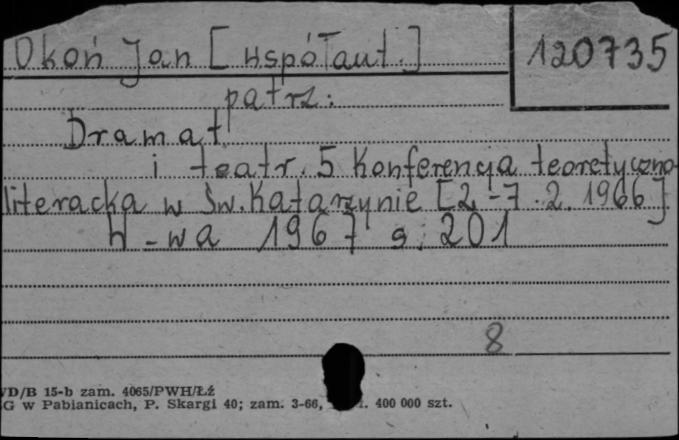 Okoń Jan [współaut.]
120735
patrz:
Dramat
i teatr. 5 Konferencja teoretyczno
literacka w Św. Katarzynie [2-7.2.1966]
W-wa 1967 s. 201
8
VD/B 15-b zam. 4065/PWH/Łź
G w Pabianicach, P. Skargi 40; zam. 3-66, 400 000 szt.